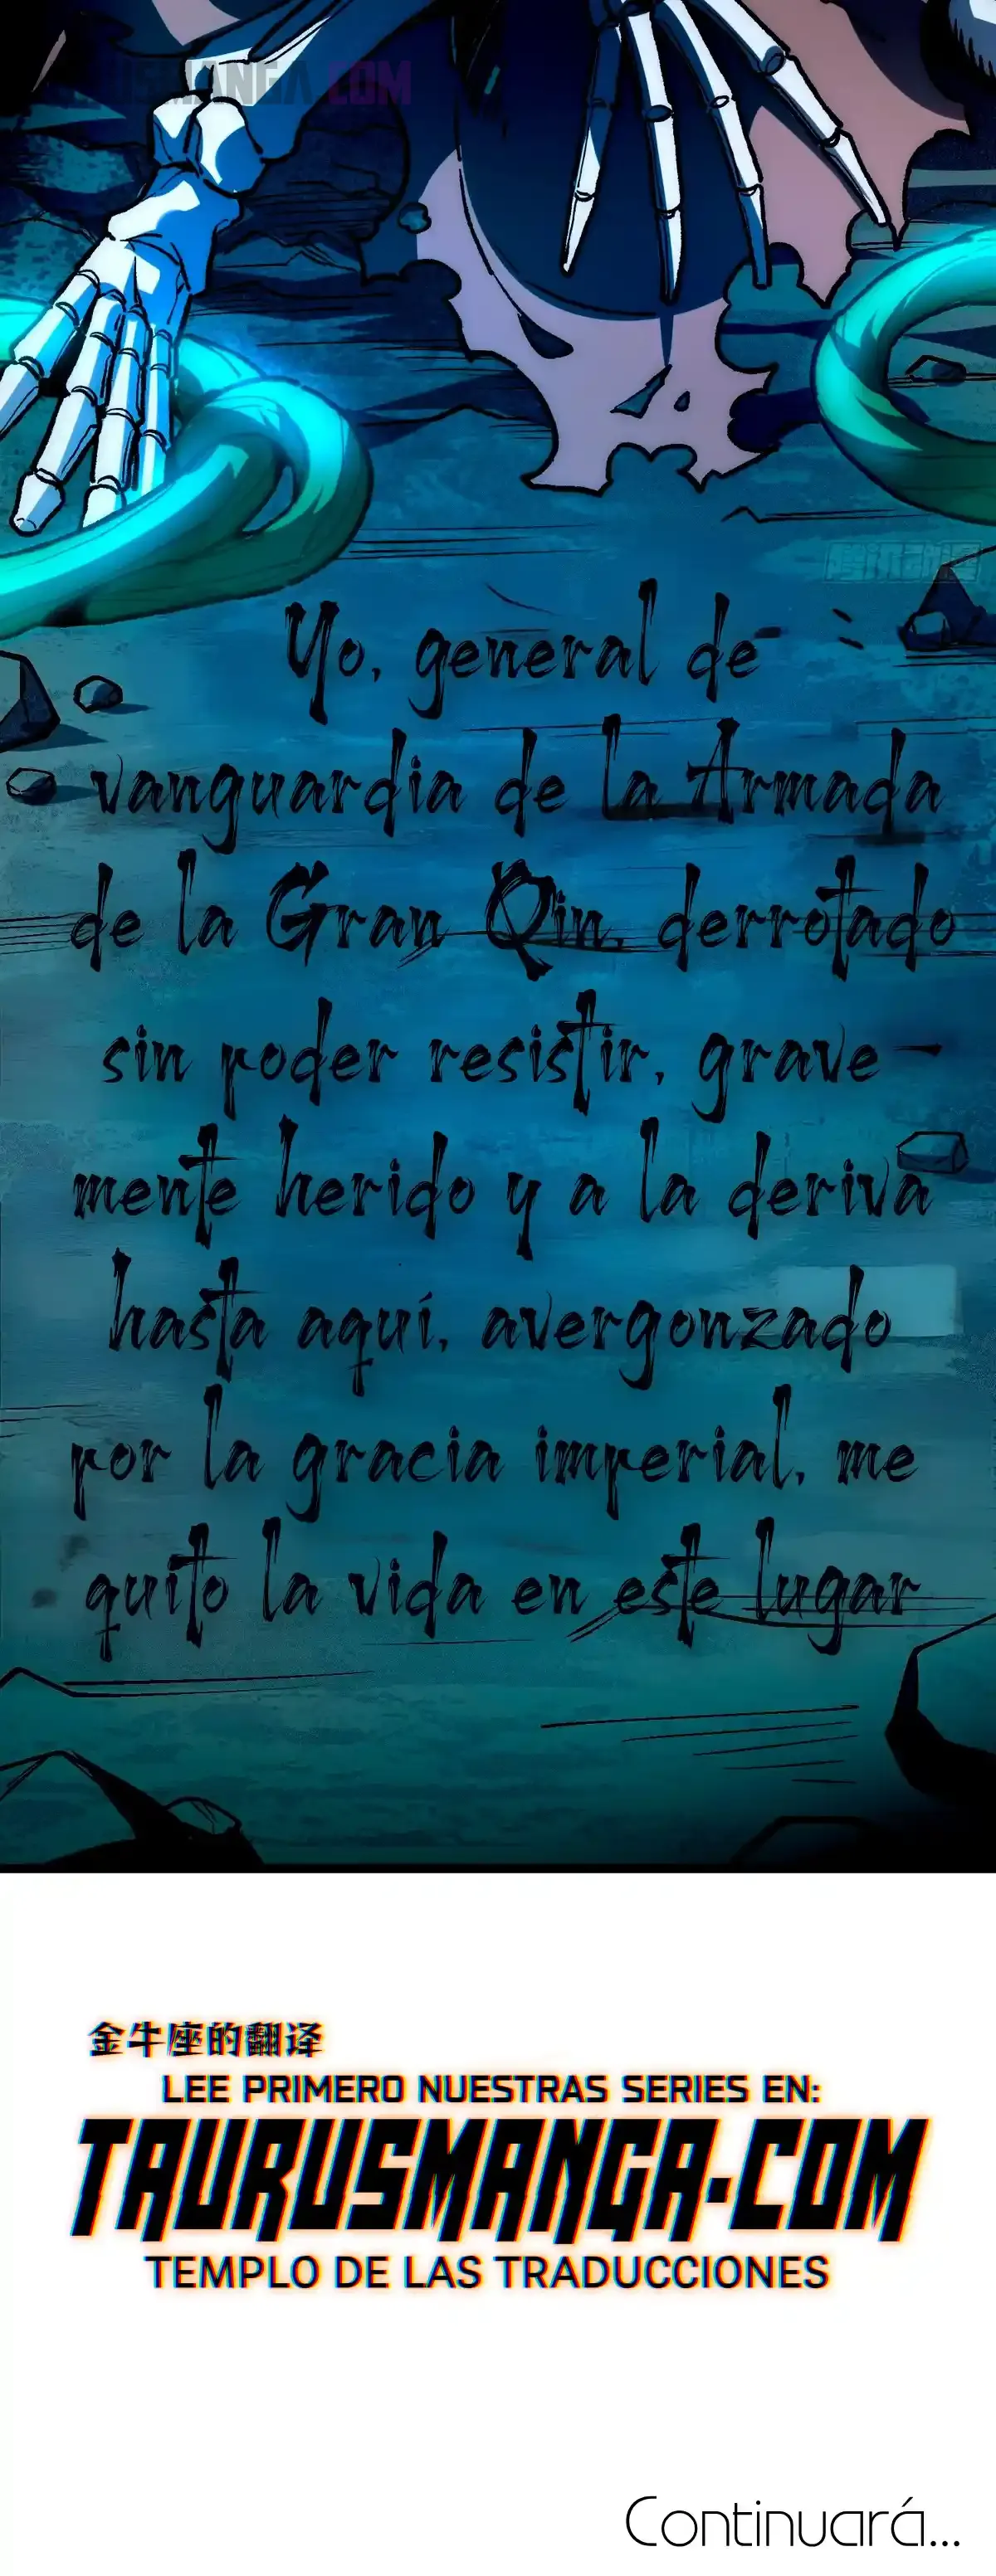 Yo, general de
vanguardia de la Armada
de la Gran Qin, derrotado
sin poder resistir, grave-
mente herido y a la deriva
hasta aquí, avergonzado
por la gracia imperial, me
quito la vida en este lugar
金牛座的翻译
LEE PRIMERO NUESTRAS SERIES EN:
TAURUSMANGA.COM
TEMPLO DE LAS TRADUCCIONES
Continuará...